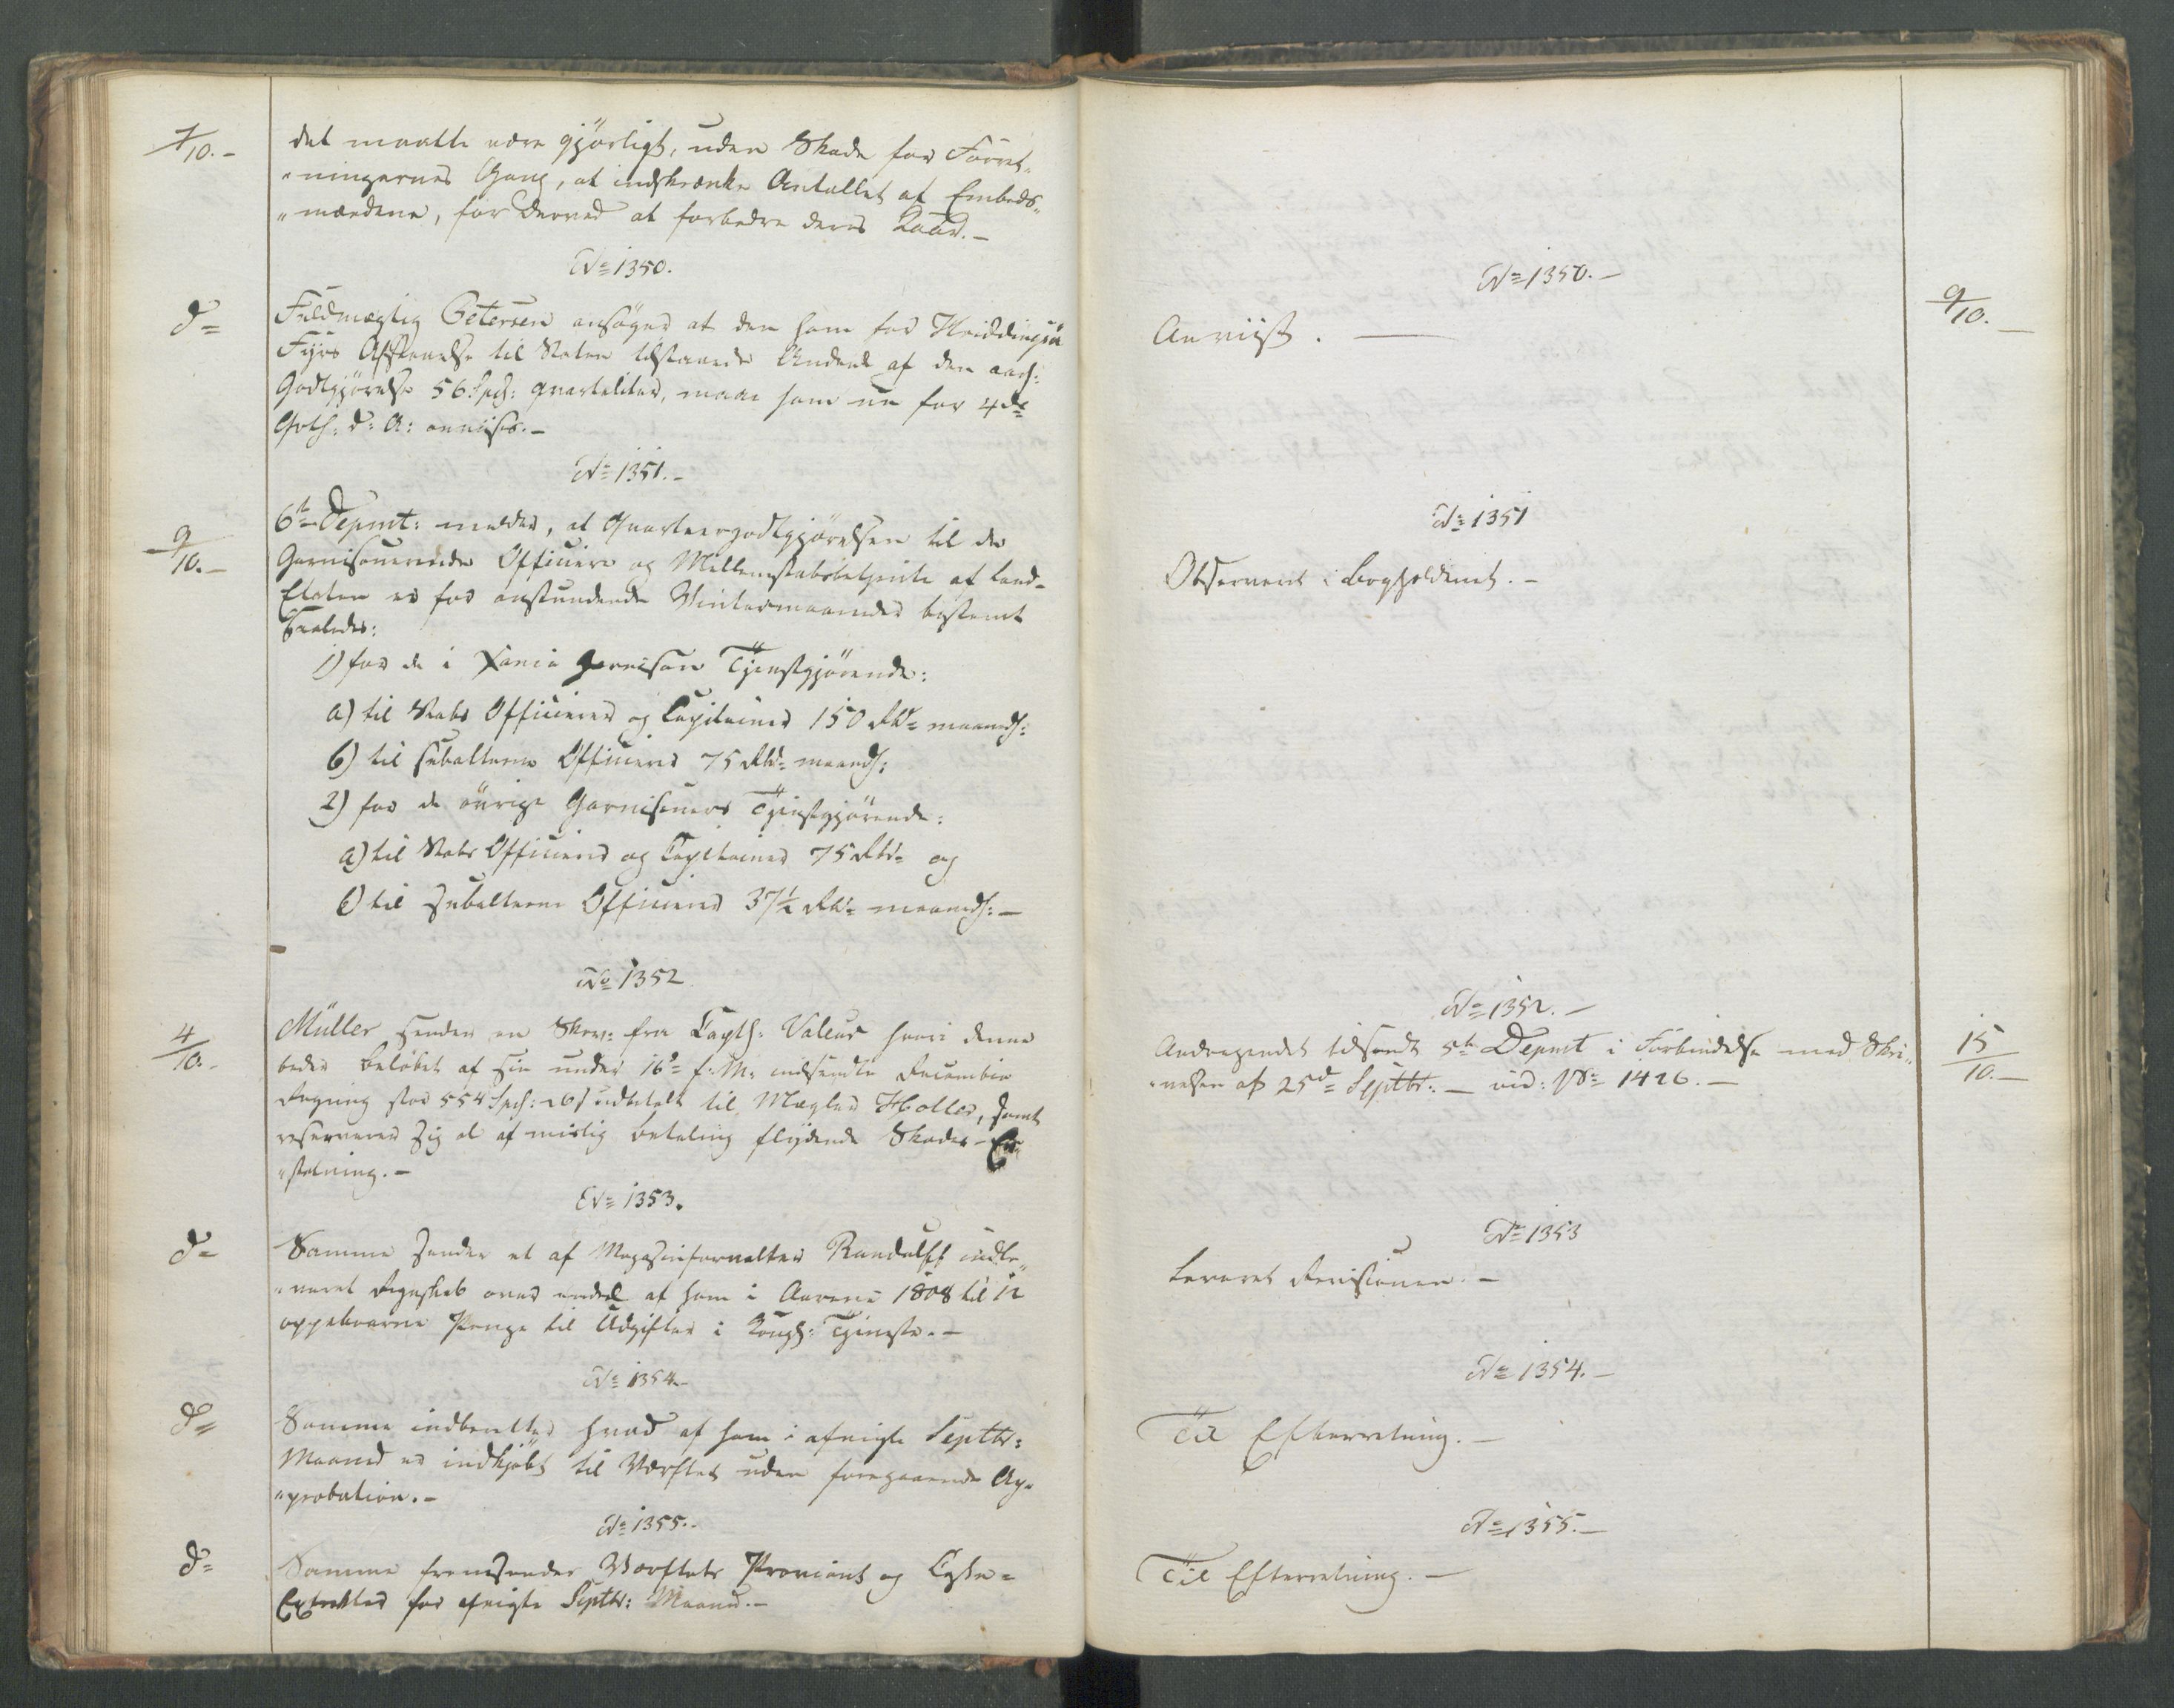 7/10.-
det maatte være gjørligt, uden Skade for Forret„
„ningernes Gang, at indskrænke Antallet af Embeds„
„mændene, for derved at forbedre deres Kaar.-
No 1350.
do
Fuldmægtig Petersen ansøger at den ham for
Fyrs Afstaaelse til Staten tilstaaede Andeel af den aarl:
Godtgjørelse 56 Spd: qvartaliter, maae ham nu for 4de
Qvth: d: A: anvises.-
No 1351.-
9/10.-
6te Depmt: melder, at Qvarteergodtgjørelsen til de
Garnisonerende Officierer og Mellemstabsbetjente af Land-
Etaten er for anstundende Vintermaaneder bestemt
saaledes:
1) for de i Xania Garnison Tjenstgjørende:
a) til Stabs Officierer og Capitainer 150 Rbd maanedl:
b) til subalterne Officierer 75 Rbd maanedl:
2) for de øvrige Garnisoners Tjenstgjørende:
a) til Stabs Officierer og Capitainer 75 Rbd og
b) til Subalterne Officierer 37½ Rbd maanedl:-
No 1352
4/10.-
Müller sender en Skriv: fra Capth: Valeur hvori denne
beder Beløbet af sin under 16de f: M: indsendte
Regning stor 554 Spd: 26 s udbetalt til Mægler Holter, samt
reserverer sig al af mislig Betaling flydende Skades-Er„
„statning.-
No 1353.
do
Samme sender et af Magasinforvalter Randulff indle„
„veret Regnskab over endeel af ham i Aarene 1808 til 12
oppebaarne Penge til Udgifter i Kongl: Tjeneste.-
No 1354.-
do
Samme indberetter hvad af ham i afvigte Septbr:
Maaned er indkjøbt til Værftet uden foregaaende Ap„
„probation.-
No 1355.-
do
Samme fremsender Værftets Proviant og
Extrakter for afvigte Septbr: Maaned.-
No 1350.-
Anviist.
9/10.-
No 1351
Observeret i Bogholderiet.-
No 1352.-
Andragendet tilsendt 5te Depmt i Forbindelse med Skri„
„velsen af 25de Septbr:- vid: No 1426.-
15/10.-
No 1353
Leveret Revisionen.-
No 1354.-
Til Efterretning.-
No 1355.-
Til Efterretning.-